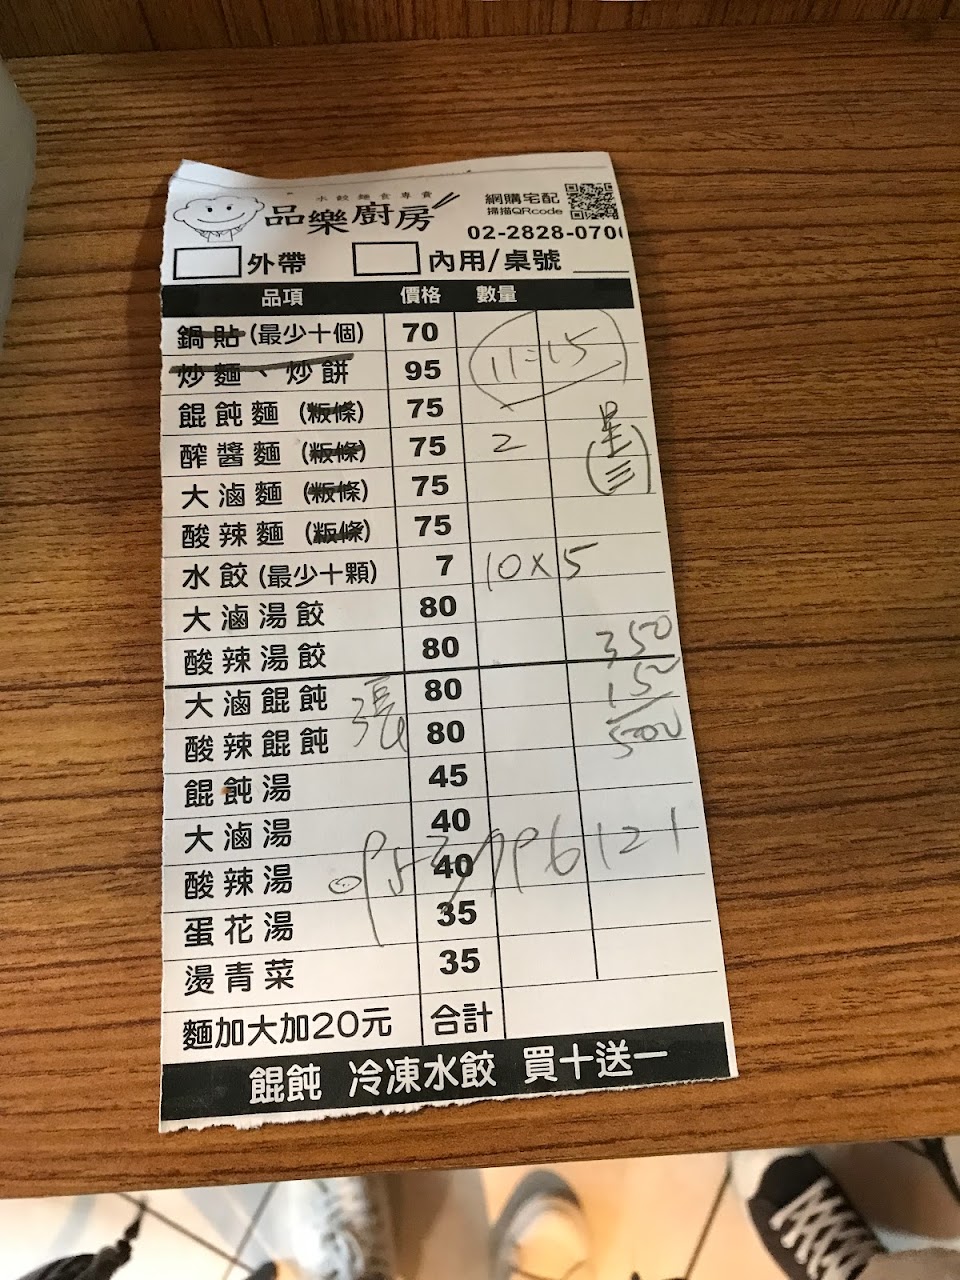 水餃麵食專賣
品樂廚房
網購宅配
掃描QRcode
02-2828-070
外帶 內用/桌號
品項 價格 數量
鍋貼(最少十個) 70
11:15
炒麵、炒餅 95
餛飩麵(粄條) 75
醡醬麵(粄條) 75 2
(三)
大滷麵(粄條) 75
酸辣麵(粄條) 75
水餃(最少十顆) 7 10×5
大滷湯餃 80
酸辣湯餃 80 350
大滷餛飩 80 150
張
酸辣餛飩 80 500
餛飩湯 45
大滷湯 40
酸辣湯 40
121
蛋花湯 35
燙青菜 35
麵加大加20元 合計
餛飩 冷凍水餃 買十送一